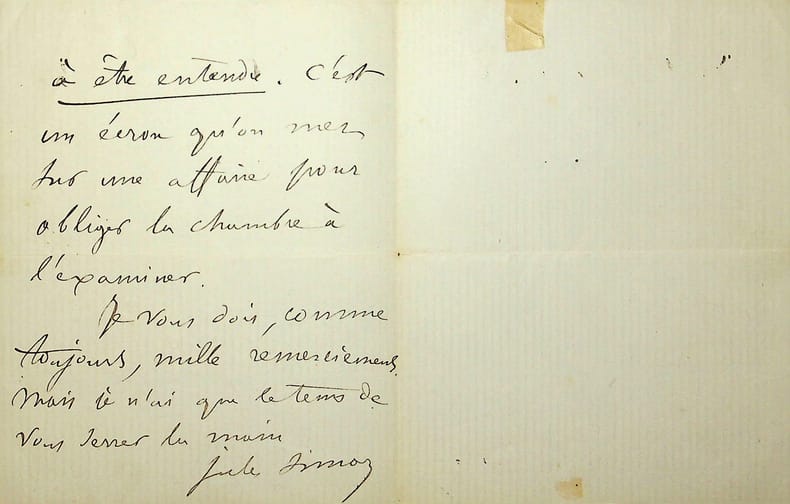 à être entendu. C'est
un écrou qu'on met
sur une affaire pour
obliger la chambre à
l'examiner.
Je vous dois, comme
toujours, mille remerciements.
Mais je n'ai que le tems de
vous serrer la main
Jules Simon